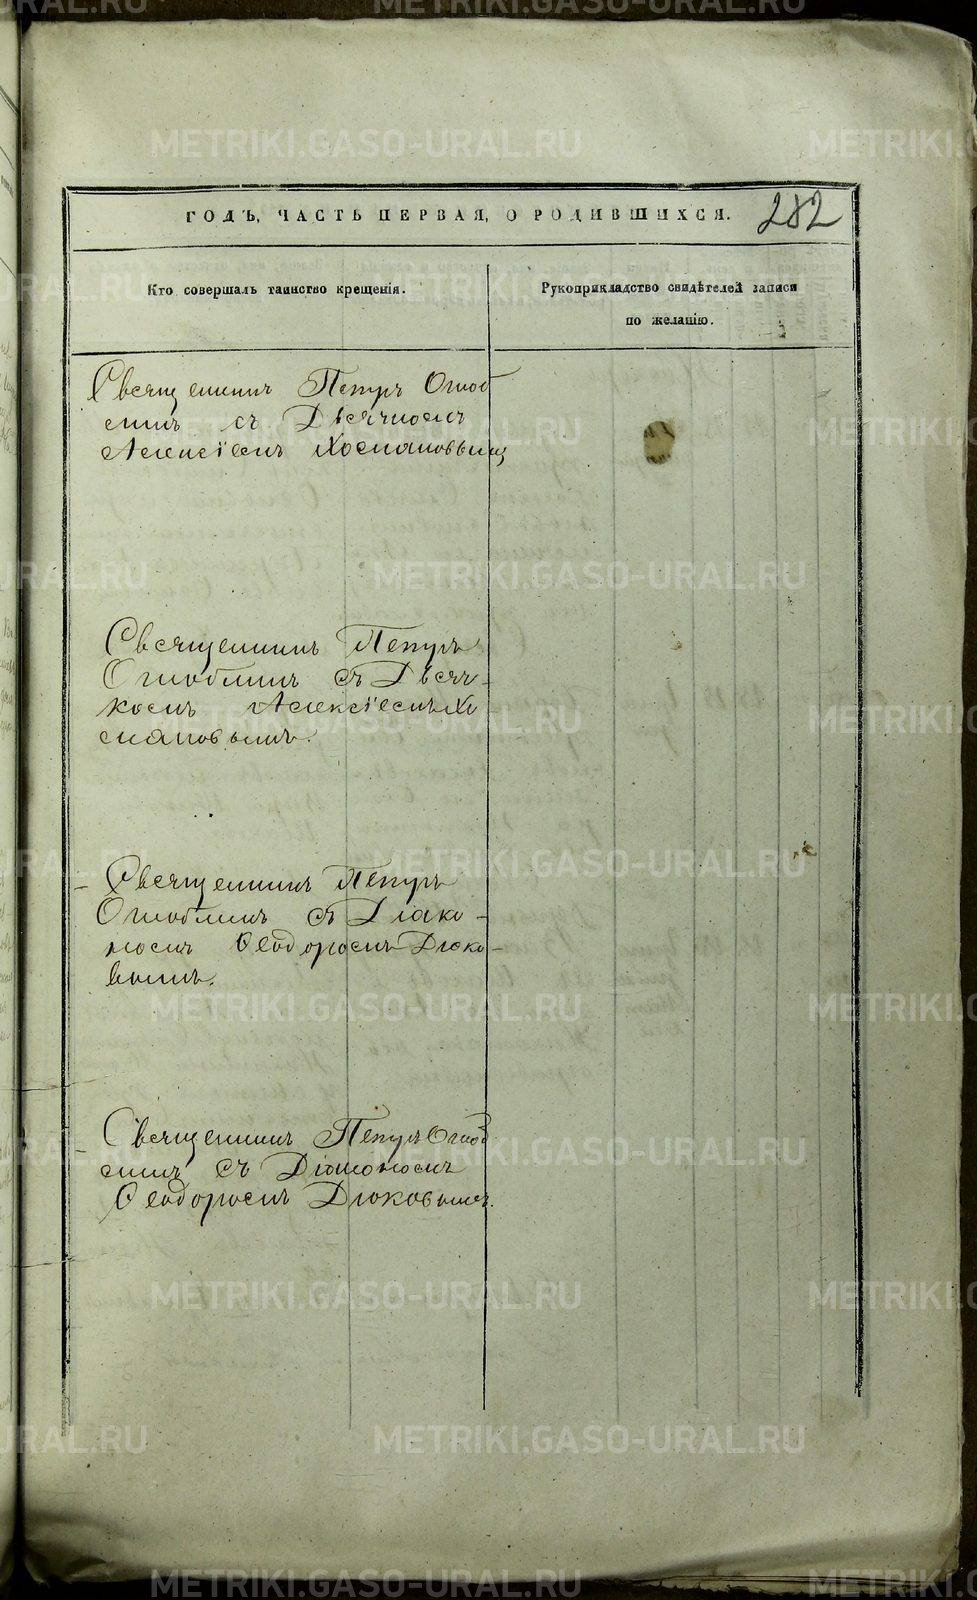 ГОДЪ, ЧАСТЬ ПЕРВАЯ, О РОДИВШИХСЯ. 282
Кто совершалъ таинство крещенія.
Рукоприкладство свидѣтелей записи
по желанію.
Священникъ Петръ Огло
блинъ съ Дьячкомъ
Алексіемъ Хосмановымъ
Священникъ Петръ
Оглоблинъ съ Дьяч-
комъ Алексіемъ Хо
смановымъ.
Священникъ Петръ
Оглоблинъ съ Діако-
номъ Ѳеодоромъ Дюко-
вымъ.
Священникъ Петръ Оглоб
линъ съ Діакономъ
Ѳеодоромъ Дюковымъ.
METRIKI.GASO-URAL.RU